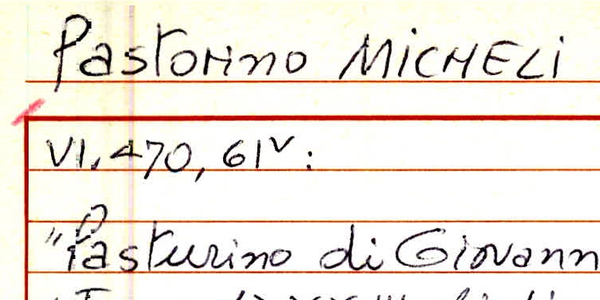 Pastorino MICHELI
VI, 470, 61v:
"Pasturino di Giovann